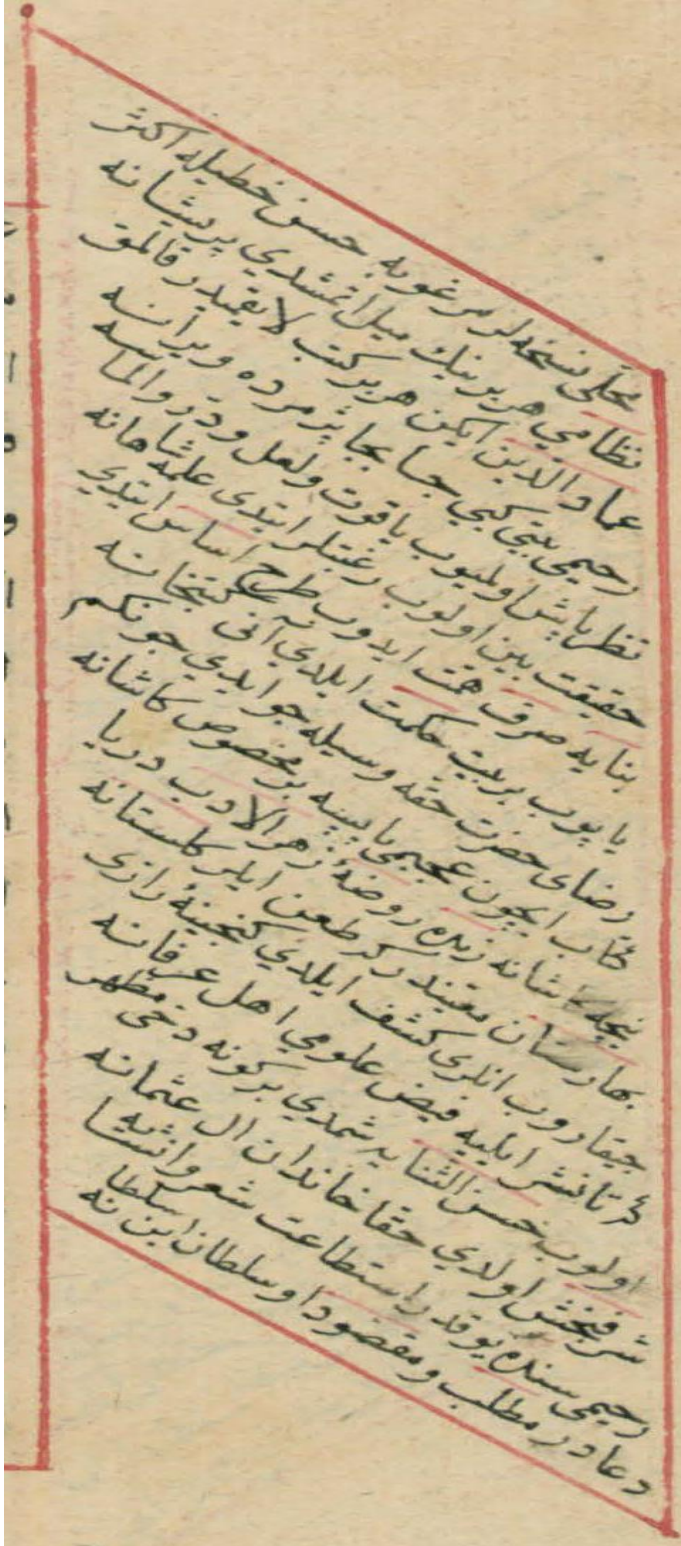 محلّى نسخه لر مرغوبه حسن خطيله اكثر
نظامى هر برينك ميل اتمشدي پريشانه
عماد الدين ايكن هر بر كتب لايقميدر قالمق
رحيمى بيتى كبى جابجا پژمرده ويرانه
نظرپاش اولميوب ياقوت ولعل ودر والماسه
حقيقت بين اولوب رغبتلر ايتدى علمه شاهانه
بنايه صرف همت ايدوب طرح اساس ايتدي
ياپوب بربيت حكمت ايلدي آنى كتبخانه
رضاى حضرت حقه وسيله جو ايدي چونكم
كتاب ايچون عجبمى ياپسه بر مخصوص كاشانه
نيجه كاشانه زيرا روضۀ زهر الادب دريا
بهارستان معنيدر كه طعن ايلر كلستانه
چيقاروب انلرى كشف ايلدي كنجينۀ رازى
كه تا نشر ايليه فيض علومي اهل عرفانه
اولوب حسن الثنايه شمدي بر كونه دخى مظهر
شرفبخش اولدي حقا خاندان ال عثمانه
رحيمى سنده يوقدر استطاعت شعر وانشايه
دعادر مطلب ومقصود او سلطان ابن سلطانه